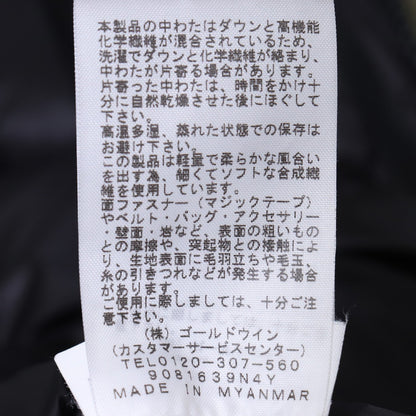 本製品の中わたはダウンと高機能
化学繊維が混合されているため、
洗濯でダウンと化学繊維が絡まり、
中わたが片寄る場合があります。
片寄った中わたは、時間をかけ十
分に自然乾燥させた後にほぐして
下さい。
高温多湿、蒸れた状態での保存は
お止め下さい。
この製品は軽量で柔らかな風合い
を出す為、細くてソフトな合成繊
維を使用しています。
面ファスナー（マジックテープ）
やベルト・バッグ・アクセサリー
・壁面・岩など、表面の粗いもの
との摩擦や、突起物との接触によ
り、生地表面に毛羽立ちや毛玉、
糸の引きつれなどが発生する場合
があります。
ご使用に際しましては、十分ご注
意下さい。
（株）ゴールドウイン
（カスタマーサービスセンター）
TEL0120-307-560
9081639N4Y
MADE IN MYANMAR